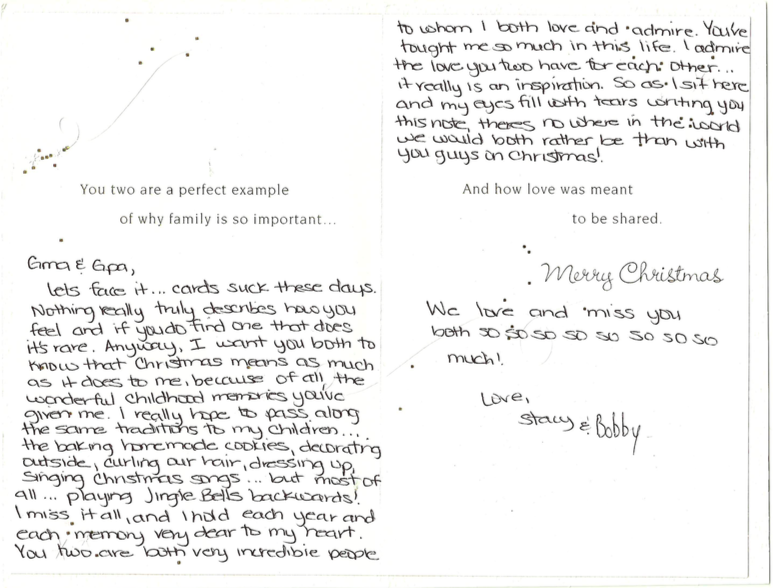 You two are a perfect example
of why family is so important...
Gma & Gpa,
lets face it... cards suck these days.
Nothing really truly describes how you
feel and if you do find one that does
it's rare. Anyway, I want you both to
know that Christmas means as much
as it does to me, because of all the
wonderful childhood memories you've
given me. I really hope to pass along
the same traditions to my children....
the baking homemade cookies, decorating
outside, curling our hair, dressing up,
singing Christmas songs... but most of
all... playing Jingle Bells backwards!
I miss it all, and I hold each year and
each memory very dear to my heart.
You two are both very incredible people
to whom I both love and admire. You've
tought me so much in this life. I admire
the love you two have for each other...
it really is an inspiration. So as I sit here
and my eyes fill with tears writing you
this note, theres no where in the world
we would both rather be than with
you guys on Christmas!
And how love was meant
to be shared.
Merry Christmas
We love and miss you
both so so so so so so so so
much!
Love,
Stacy & Bobby